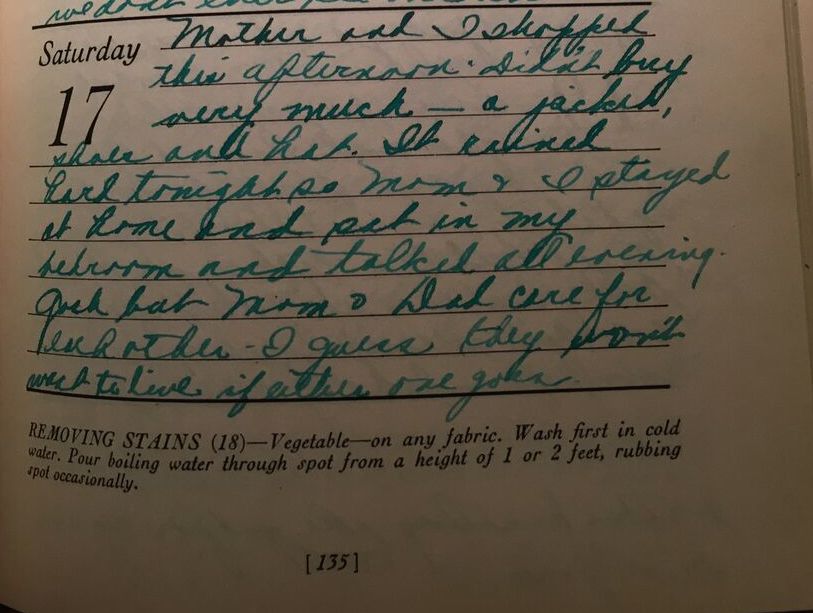 we don't
Saturday
17
Mother and I shopped
this afternoon. Didn't buy
very much — a jacket,
shoes and hat. It rained
hard tonight so Mom & I stayed
at home and sat in my
bedroom and talked all evening.
Gosh but Mom & Dad care for
each other - I guess they won't
want to live if either one goes.
REMOVING STAINS (18)—Vegetable—on any fabric. Wash first in cold
water. Pour boiling water through spot from a height of 1 or 2 feet, rubbing
spot occasionally.
[135]